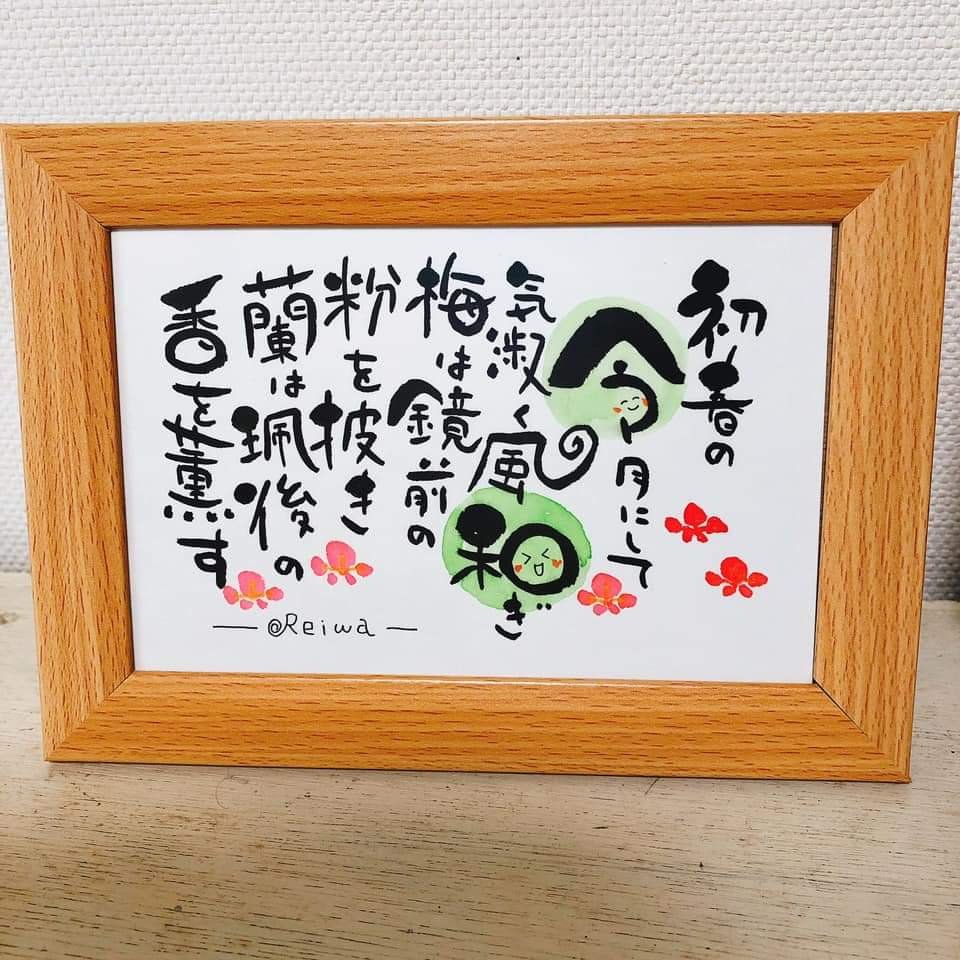 初春の
令月にして
気淑く風和ぎ
梅は鏡前の
粉を披き
蘭は珮後の
香を薫す
— @Reiwa —